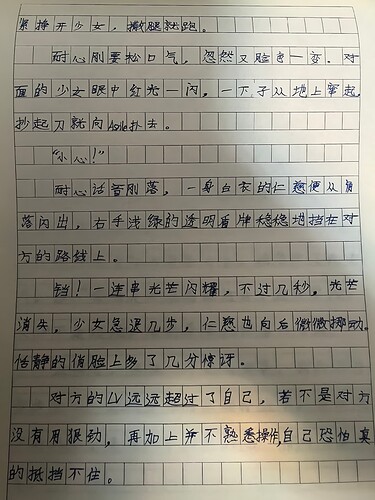 紧挣开少女，撒腿就跑。
耐心刚要松口气，忽然又脸色一变。对
面的少女眼中红光一闪，一下子从地上窜起，
抄起刀就向Agile扑去。
“小心！”
耐心话音刚落，一身白衣的仁慈便从角
落闪出，右手浅绿的透明盾牌稳稳地挡在对
方的路线上。
铛！一连串光芒闪耀，不过几秒，光芒
消失，少女急退几步，仁慈也向后微微挪动。
恬静的俏脸上多了几分惊讶。
对方的LV远远超过了自己，若不是对方
没有用狠劲，再加上并不熟悉操作,自己恐怕真
的抵挡不住。